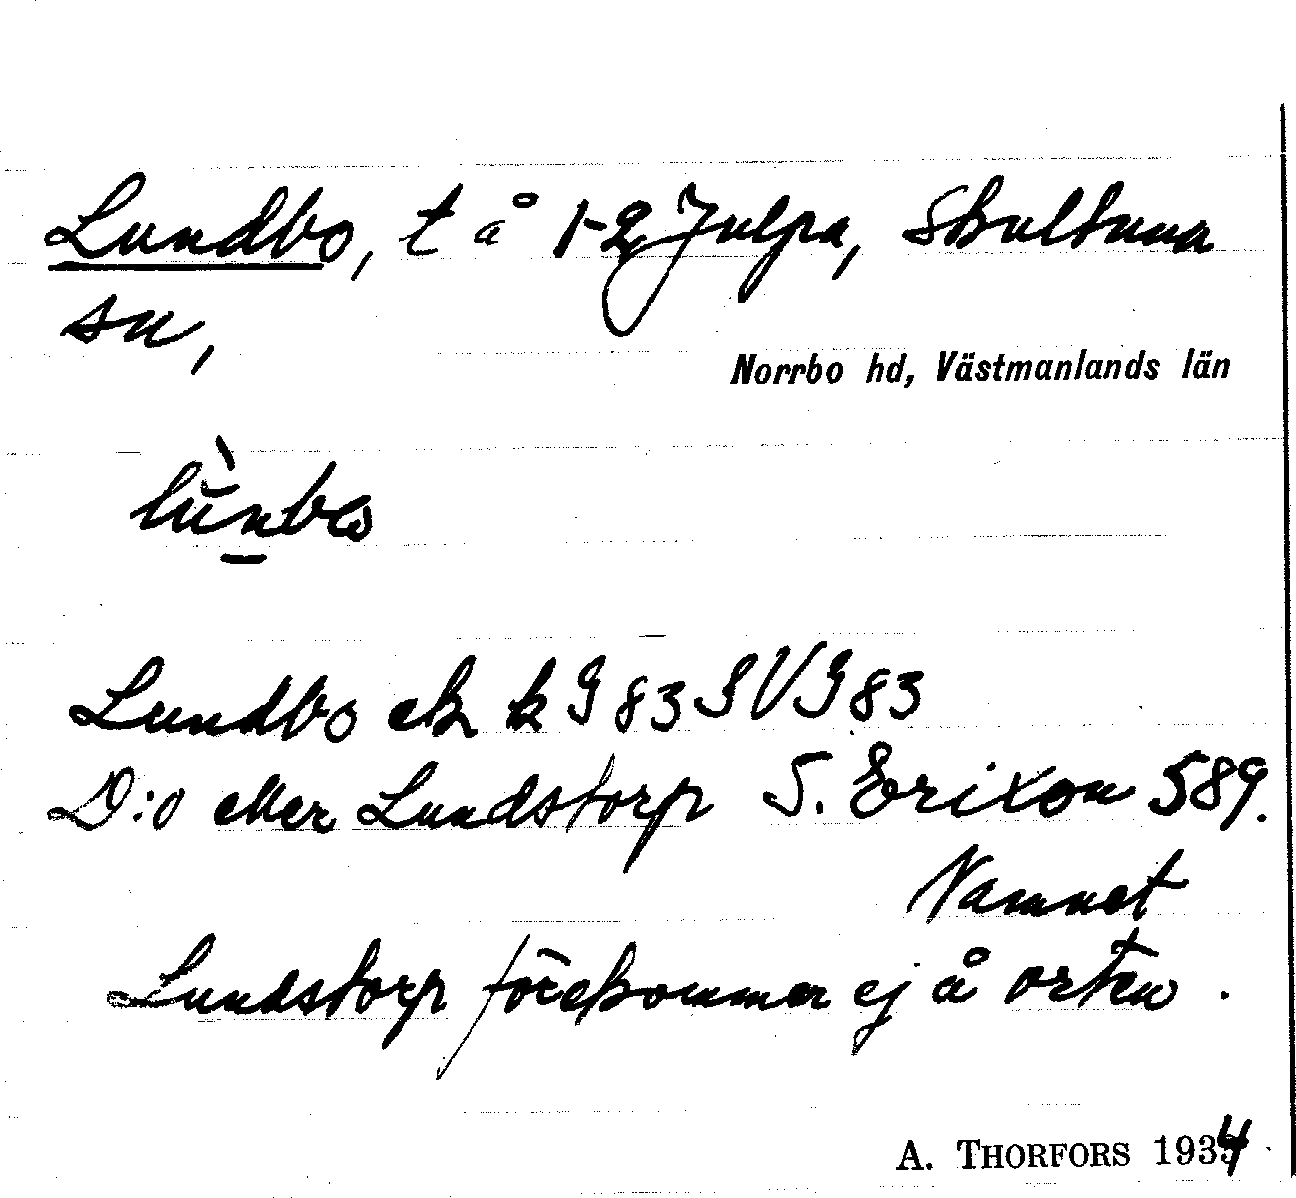 Lundbo, t å 1-2 Julpa, Skultuna
sn,
Norrbo hd, Västmanlands län
Lundbo ek k G 83 SVG 83
D:o eller Lundstorp S. Erixon 589.
Namnet
Lundstorp förekommer ej å orten.
A. THORFORS 1934